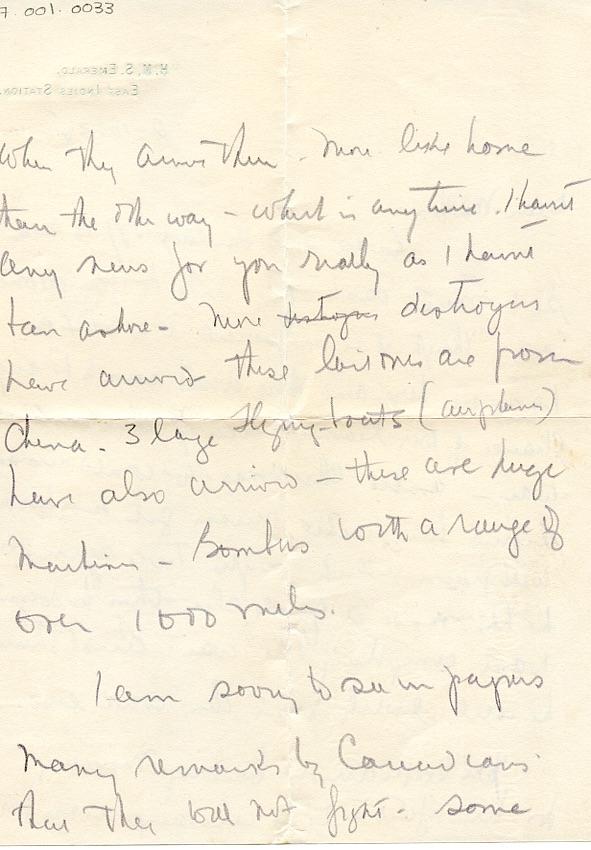 7.001.0033
H.M.S. EMERALD.
EAST INDIES STATION.
when they arrive there. More like home
than the other way - which is anytime. I haven't
any news for you really as I haven't
been ashore - More destroyers destroyers
have arrived these last ones are from
China - 3 large flying-boats (airplanes)
have also arrived - these are huge
machines - Bombers with a range of
over 1000 miles.
I am sorry to see in papers
Many remarks by Canadians
that they will not fight - some